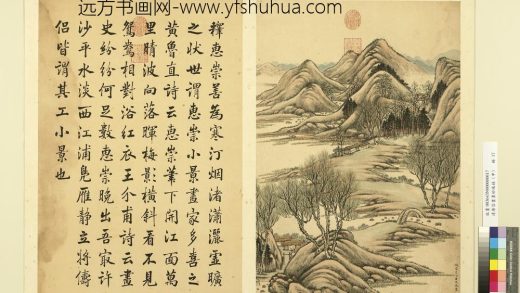 远方书画网-www.yfshuhua.com
釋惠崇善為寒汀煙渚瀟灑虛曠
之狀世謂惠崇小景畫家多喜之
黃魯直詩云惠崇筆下開江面萬
里晴波向落暉梅影橫斜看不見
鴛鴦相對浴紅衣王介甫詩云畫
史紛紛何足數惠崇晚出吾最許
沙平水淡西江浦鳧雁靜立將儔
侶皆謂其工小景也